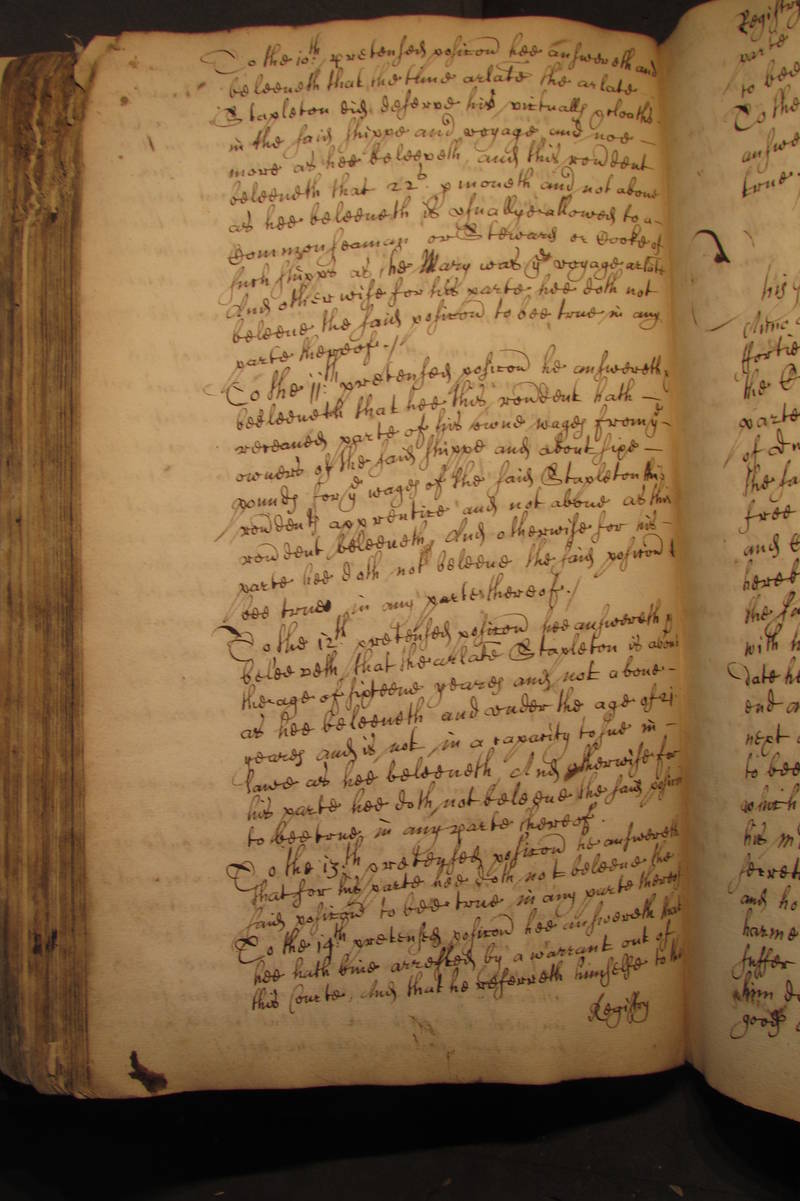 To the 10th pretensed posicon hee answereth and
beleeveth that the time arlate the arlate
Stapleton did deserve his victualls & cloaths
in the said shippe and voyage and noe
more as hee beleeveth, and this rondent
beleeveth that 22s p moneth and not above
as hee beleeveth is usually allowed to a
Common seaman or Steward or Cooke of
such shipps as the Mary was ye voyage arlate
And otherwise for his parte hee doth not
beleeve the said posicon to bee true in any
parte thereof./
To the 11th pretensed posicon he answereth &
beeleeveth that hee this rondent hath
receaved parte of his owne wages from ye
owners of the said shippe and about sixe
pounds for ye wages of the said Stapleton this
rondents apprentice and not above as this
rondent beleeveth, And otherwise for his
parte hee doth not beleeve the said posicon to
bee true in any parte thereof./
To the 12th pretensed posicon hee answereth &
beleeveth that the arlate Stapleton is about
the age of sixteene yeares and not above
as hee beleeveth and under the age of 21
yeares and is not in a capacity to sue in
Lawe as hee beleeveth, And otherwise for
his parte hee doth not beleeve the said posicon
to bee true in any parte thereof.
To the 13th pretensed posicon he answereth
that for his parte hee doth not beleeve the
said posicon to bee true in any parte thereof
To the 14th pretensed posicon hee answereth that
hee hath bine arrested by a warrant out of
this Courte, And that he referreth himselfe to the
Registry
Registry
parte
to bee
To the
answe
true.
his
the
parte
of
the sa
free
and
hereb
the sa
with h
date he
end
next
to bee
which
his
and ho
harme
suffer
him
good